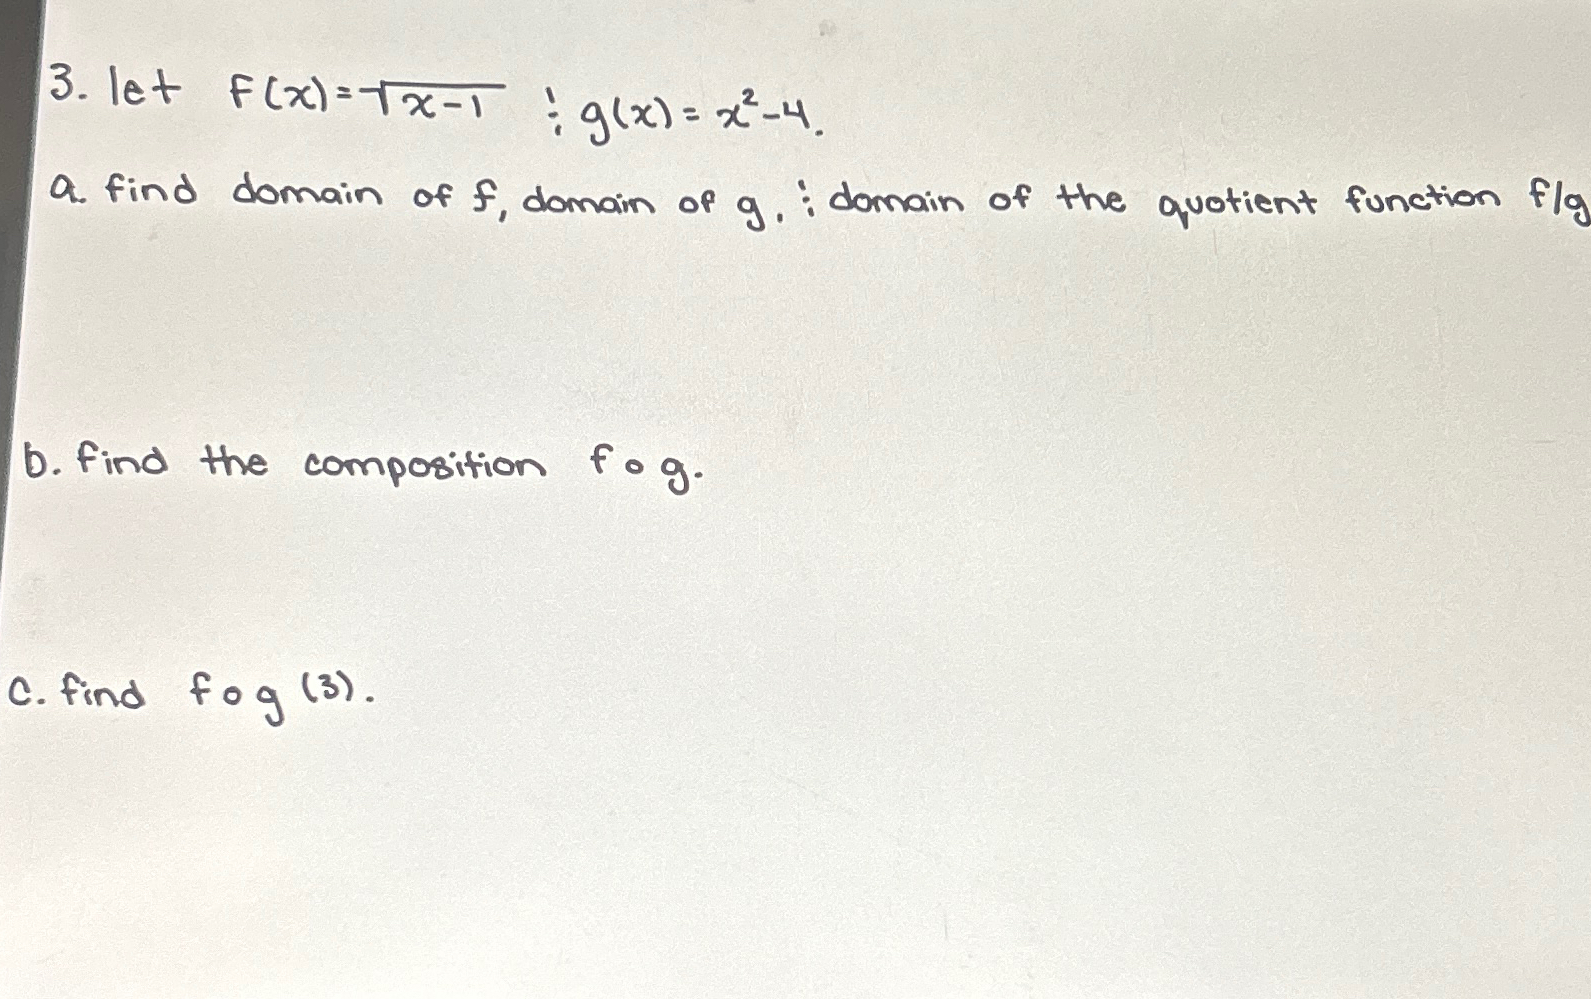 3. let f(x)=√x-1 & g(x)= x²-4.
a. find domain of f, domain of g, & domain of the quotient function f/g
b. find the composition f∘g.
c. find f∘g (3).